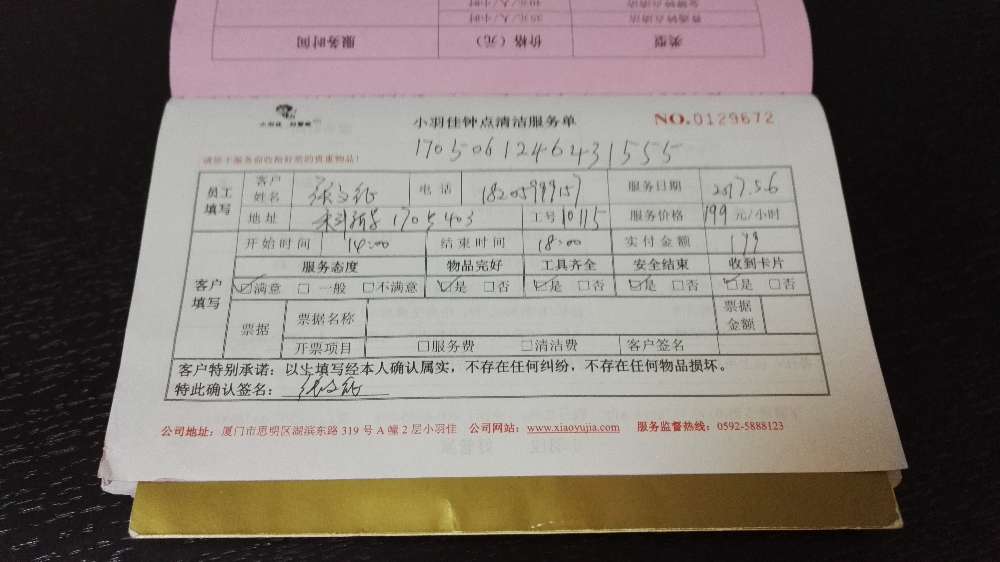 40元/人/小时
普通钟点清洁 35元/人/小时
类型 价格（元） 服务时间
小羽佳 好管家
小羽佳钟点清洁服务单 NO.0129672
170506124643 1555
员工填写 客户姓名 电话 18205999157 服务日期 2017.5.6
地址 1705403 工号 10115 服务价格 199 元/小时
客户填写 开始时间 14:00 结束时间 18:00 实付金额 199
服务态度 物品完好 工具齐全 安全结束 收到卡片
☑满意 □一般 □不满意 ☑是 □否 ☑是 □否 ☑是 □否 ☑是 □否
票据 票据名称 票据金额
开票项目 □服务费 □清洁费 客户签名
客户特别承诺：以上填写经本人确认属实，不存在任何纠纷，不存在任何物品损坏。
特此确认签名：
公司地址：厦门市思明区湖滨东路 319 号 A 幢 2 层小羽佳 公司网站：www.xiaoyujia.com 服务监督热线：0592-5888123